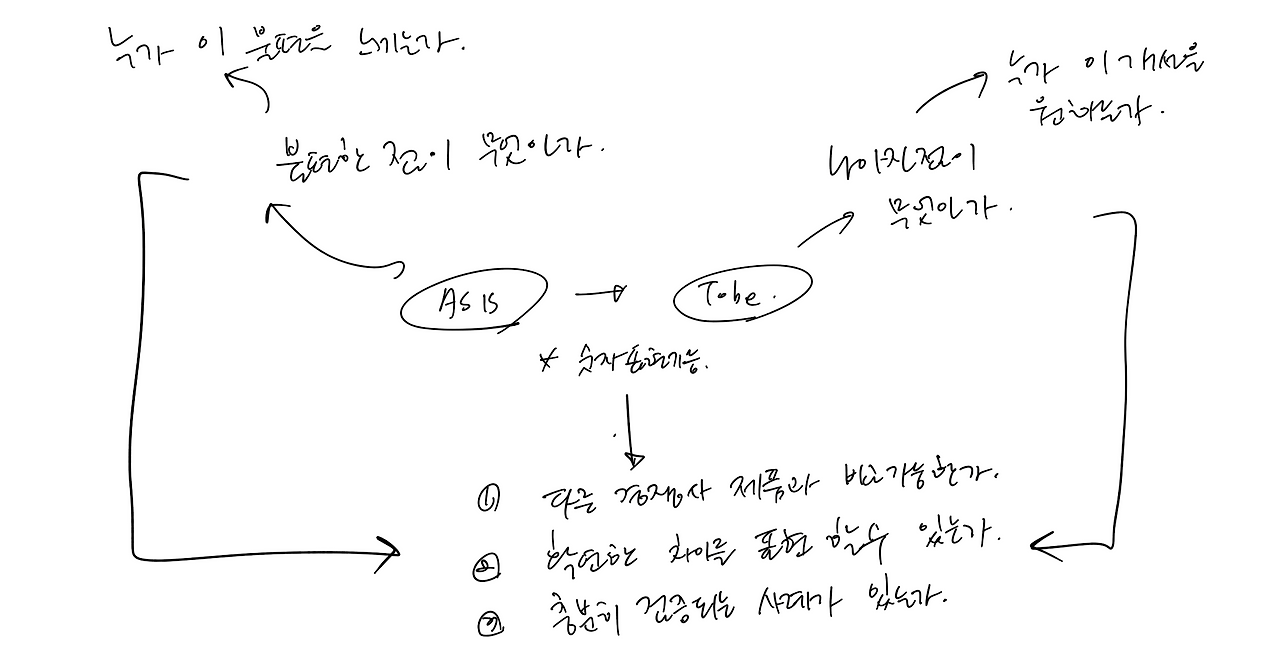 누가 이 불편을 느끼는가.
누가 이 개선을
원하는가.
불편한 점이 무엇인가.
나아진점이
무엇인가.
AS IS
To be.
* 숫자표현가능.
① 다른 경쟁사 제품과 비교가능한가.
② 확연한 차이를 표현 할수 있는가.
③ 충분히 검증되는 사례가 있는가.